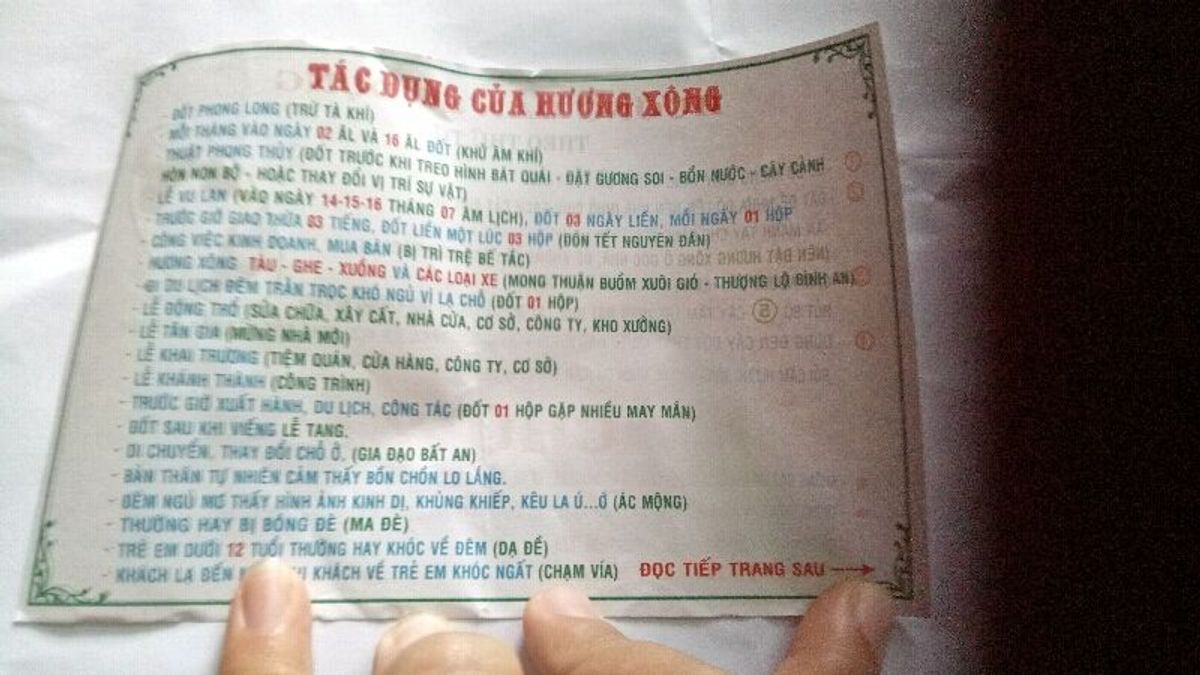 TÁC DỤNG CỦA HƯƠNG XÔNG
ĐỐT PHONG LONG (TRỪ TÀ KHÍ)
MỖI THÁNG VÀO NGÀY 02 ÂL VÀ 16 ÂL ĐỐT (KHỬ ÂM KHÍ)
THUẬT PHONG THỦY (ĐỐT TRƯỚC KHI TREO HÌNH BÁT QUÁI - ĐẶT GƯƠNG SOI - BỒN NƯỚC - CÂY CẢNH
HÒN NON BỘ - HOẶC THAY ĐỔI VỊ TRÍ SỰ VẬT)
LỄ VU LAN (VÀO NGÀY 14-15-16 THÁNG 07 ÂM LỊCH), ĐỐT 03 NGÀY LIỀN, MỖI NGÀY 01 HỘP
- TRƯỚC GIỜ GIAO THỪA 03 TIẾNG, ĐỐT LIỀN MỘT LÚC 03 HỘP (ĐÓN TẾT NGUYÊN ĐÁN)
- CÔNG VIỆC KINH DOANH, MUA BÁN (BỊ TRÌ TRỆ BẾ TẮC)
- HƯƠNG XÔNG TÀU - GHE - XUỒNG VÀ CÁC LOẠI XE (MONG THUẬN BUỒM XUÔI GIÓ - THƯỢNG LỘ BÌNH AN)
- ĐI DU LỊCH ĐÊM TRẰN TRỌC KHÓ NGỦ VÌ LẠ CHỖ (ĐỐT 01 HỘP)
- LỄ ĐỘNG THỔ (SỬA CHỮA, XÂY CẤT, NHÀ CỬA, CƠ SỞ, CÔNG TY, KHO XƯỞNG)
- LỄ TÂN GIA (MỪNG NHÀ MỚI)
- LỄ KHAI TRƯƠNG (TIỆM QUÁN, CỬA HÀNG, CÔNG TY, CƠ SỞ)
- LỄ KHÁNH THÀNH (CÔNG TRÌNH)
- TRƯỚC GIỜ XUẤT HÀNH, DU LỊCH, CÔNG TÁC (ĐỐT 01 HỘP GẶP NHIỀU MAY MẮN)
- ĐỐT SAU KHI VIẾNG LỄ TANG.
- DI CHUYỂN, THAY ĐỔI CHỖ Ở. (GIA ĐẠO BẤT AN)
- BẢN THÂN TỰ NHIÊN CẢM THẤY BỒN CHỒN LO LẮNG.
- ĐÊM NGỦ MƠ THẤY HÌNH ẢNH KINH DỊ, KHỦNG KHIẾP, KÊU LA Ú...Ớ (ÁC MỘNG)
- THƯỜNG HAY BỊ BÓNG ĐÈ (MA ĐÈ)
- TRẺ EM DƯỚI 12 TUỔI THƯỜNG HAY KHÓC VỀ ĐÊM (DẠ ĐỀ)
- KHÁCH LẠ ĐẾN KHÁCH VỀ TRẺ EM KHÓC NGẤT (CHẠM VÍA) ĐỌC TIẾP TRANG SAU